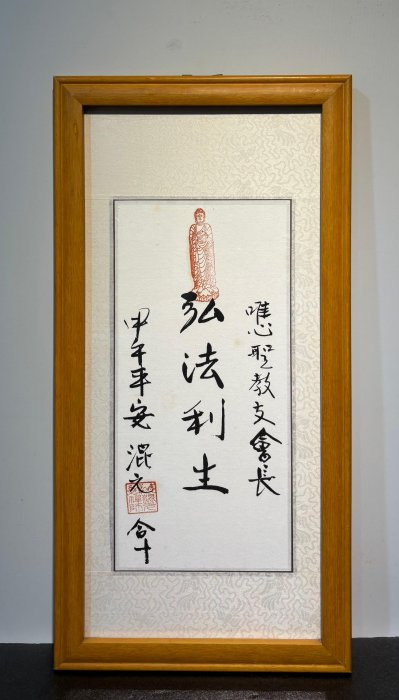 唯心聖教支會長
弘法利生
甲午平安 混元
合十